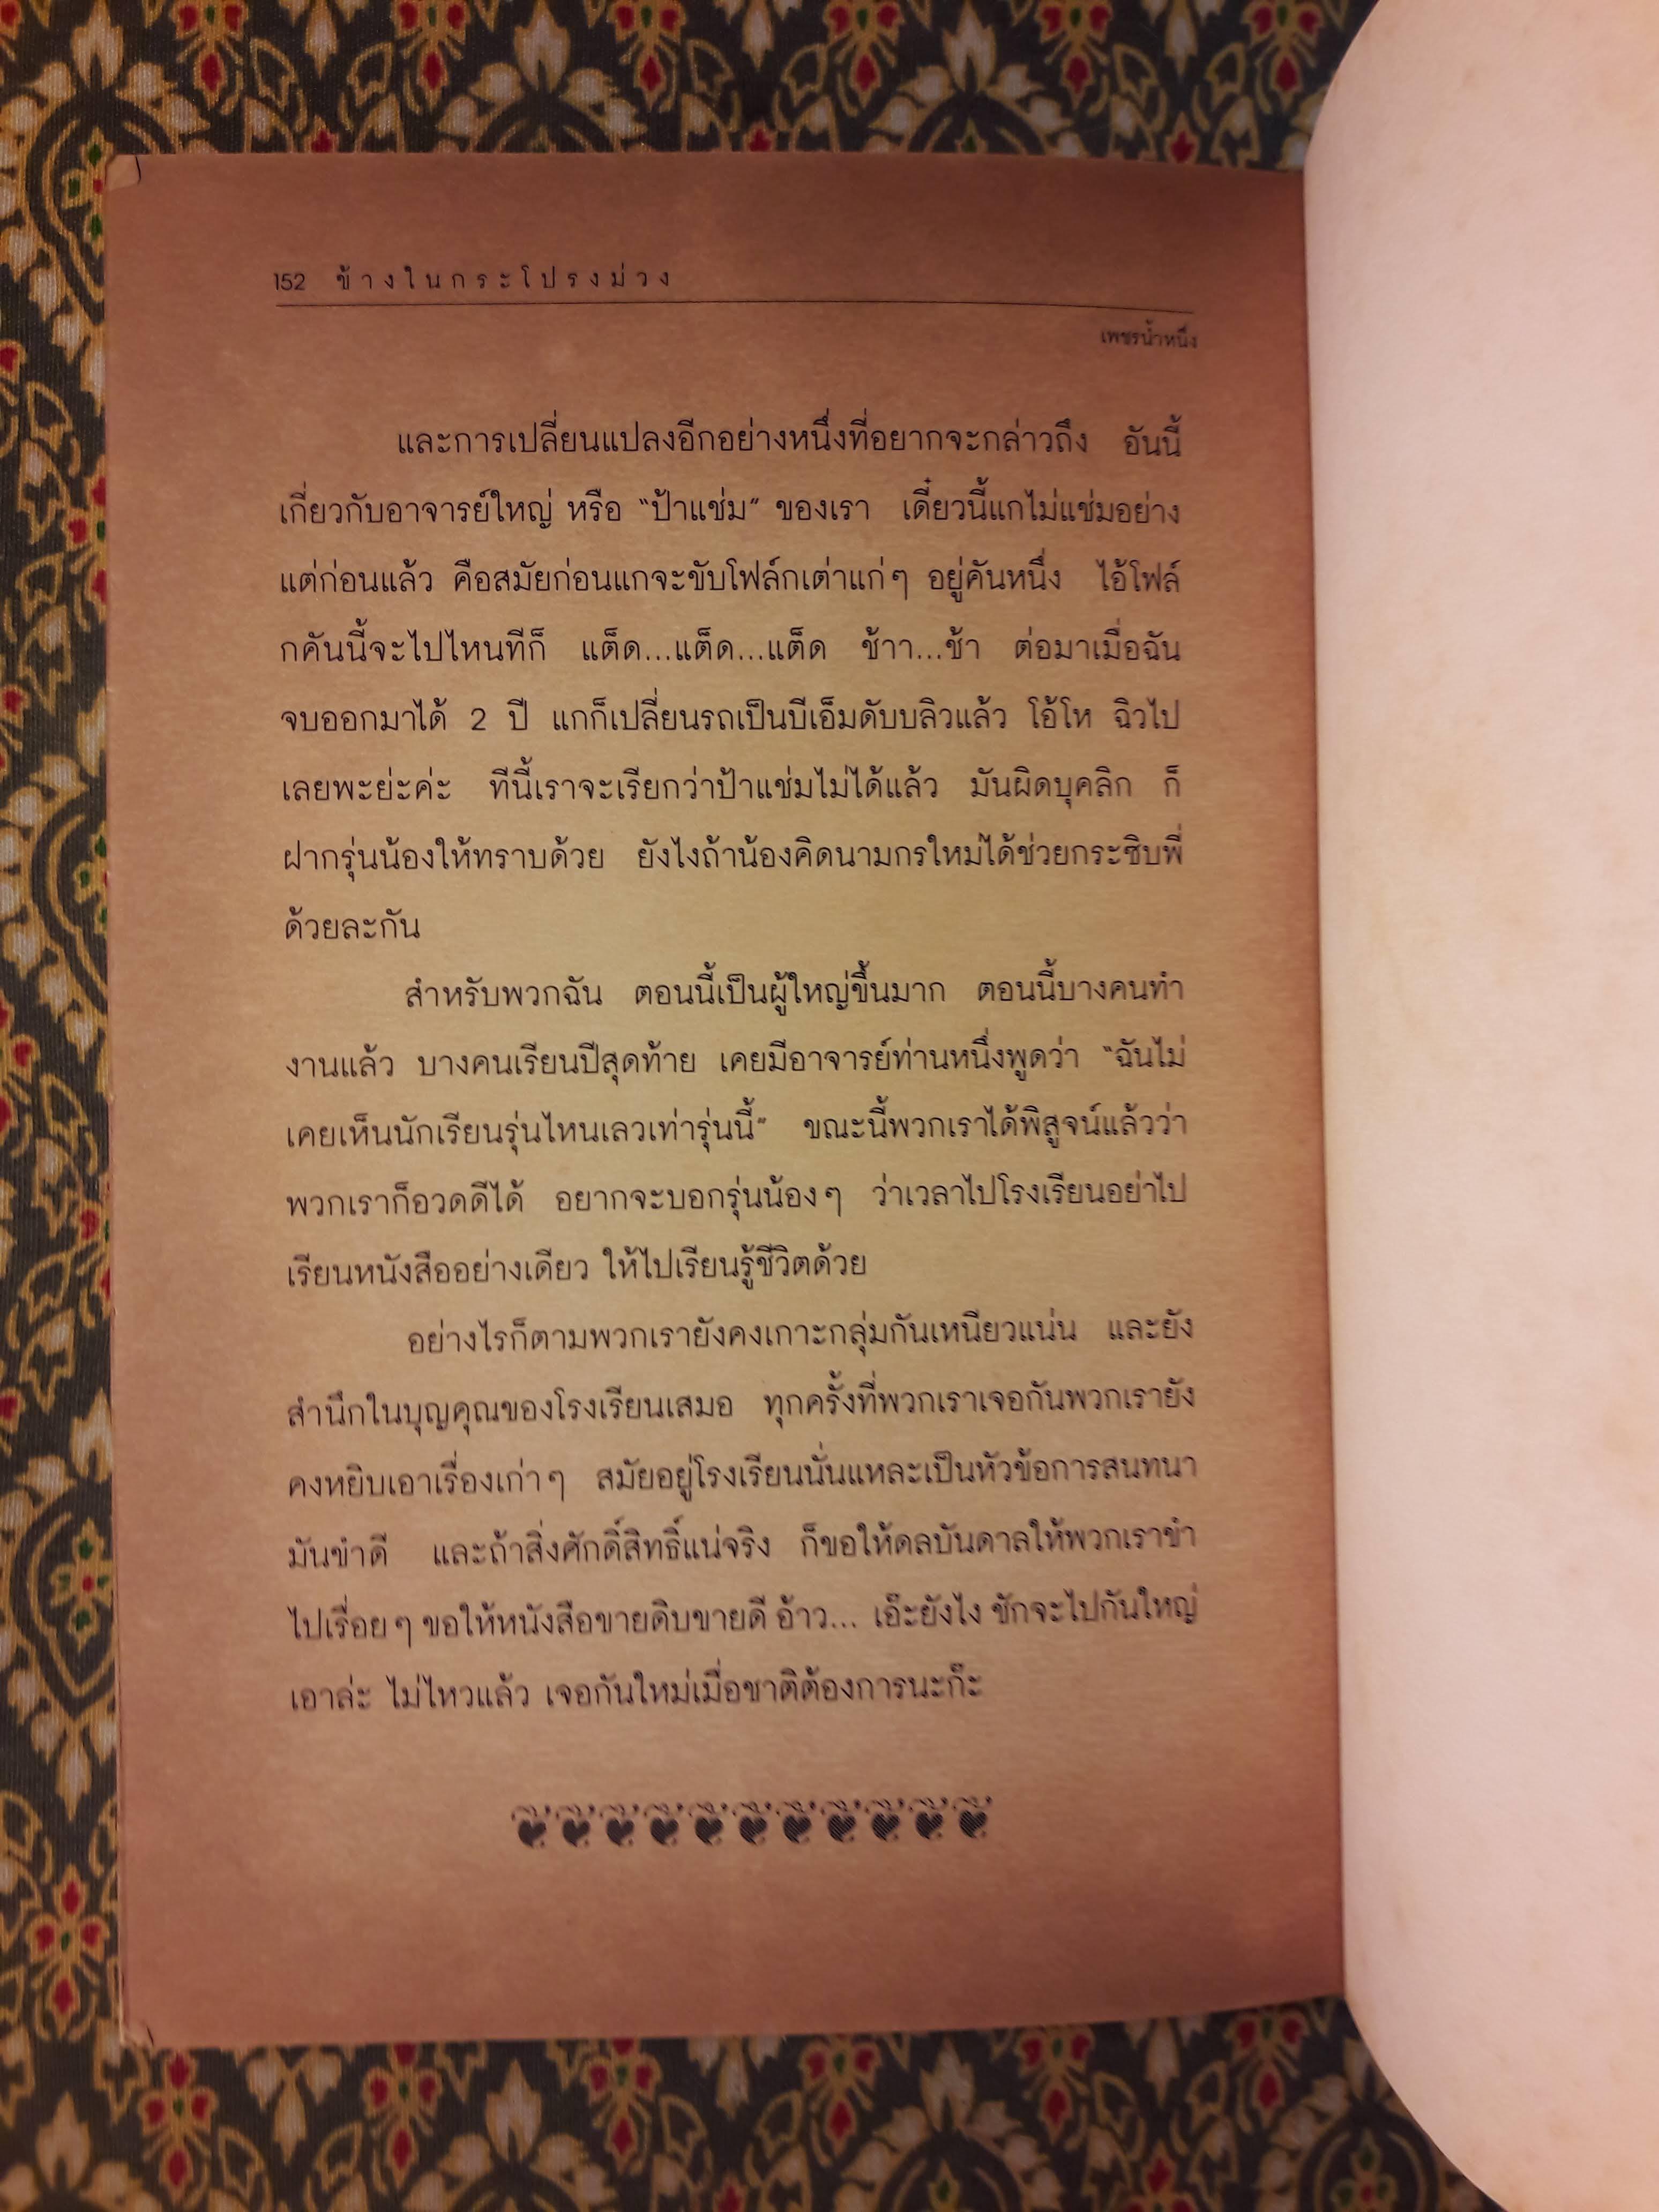 152 ข้างในกระโปรงม่วง
เพชรน้ำหนึ่ง
และการเปลี่ยนแปลงอีกอย่างหนึ่งที่อยากจะกล่าวถึง อันนี้
เกี่ยวกับอาจารย์ใหญ่ หรือ “ป้าแช่ม” ของเรา เดี๋ยวนี้แกไม่แช่มอย่าง
แต่ก่อนแล้ว คือสมัยก่อนแกจะขับโฟล์กเต่าแก่ๆ อยู่คันหนึ่ง ไอ้โฟล์
กคันนี้จะไปไหนทีก็ แต็ด...แต็ด...แต็ด ช้าา...ช้า ต่อมาเมื่อฉัน
จบออกมาได้ 2 ปี แกก็เปลี่ยนรถเป็นบีเอ็มดับบลิวแล้ว โอ้โห ฉิวไป
เลยพะย่ะค่ะ ทีนี้เราจะเรียกว่าป้าแช่มไม่ได้แล้ว มันผิดบุคลิก ก็
ฝากรุ่นน้องให้ทราบด้วย ยังไงถ้าน้องคิดนามกรใหม่ได้ช่วยกระซิบพี่
ด้วยละกัน
สำหรับพวกฉัน ตอนนี้เป็นผู้ใหญ่ขึ้นมาก ตอนนี้บางคนทำ
งานแล้ว บางคนเรียนปีสุดท้าย เคยมีอาจารย์ท่านหนึ่งพูดว่า “ฉันไม่
เคยเห็นนักเรียนรุ่นไหนเลวเท่ารุ่นนี้” ขณะนี้พวกเราได้พิสูจน์แล้วว่า
พวกเราก็อวดดีได้ อยากจะบอกรุ่นน้องๆ ว่าเวลาไปโรงเรียนอย่าไป
เรียนหนังสืออย่างเดียว ให้ไปเรียนรู้ชีวิตด้วย
อย่างไรก็ตามพวกเรายังคงเกาะกลุ่มกันเหนียวแน่น และยัง
สำนึกในบุญคุณของโรงเรียนเสมอ ทุกครั้งที่พวกเราเจอกันพวกเรายัง
คงหยิบเอาเรื่องเก่าๆ สมัยอยู่โรงเรียนนั่นแหละเป็นหัวข้อการสนทนา
มันขำดี และถ้าสิ่งศักดิ์สิทธิ์แน่จริง ก็ขอให้ดลบันดาลให้พวกเราขำ
ไปเรื่อยๆ ขอให้หนังสือขายดิบขายดี อ้าว... เอ๊ะยังไง ชักจะไปกันใหญ่
เอาล่ะ ไม่ไหวแล้ว เจอกันใหม่เมื่อชาติต้องการนะก๊ะ